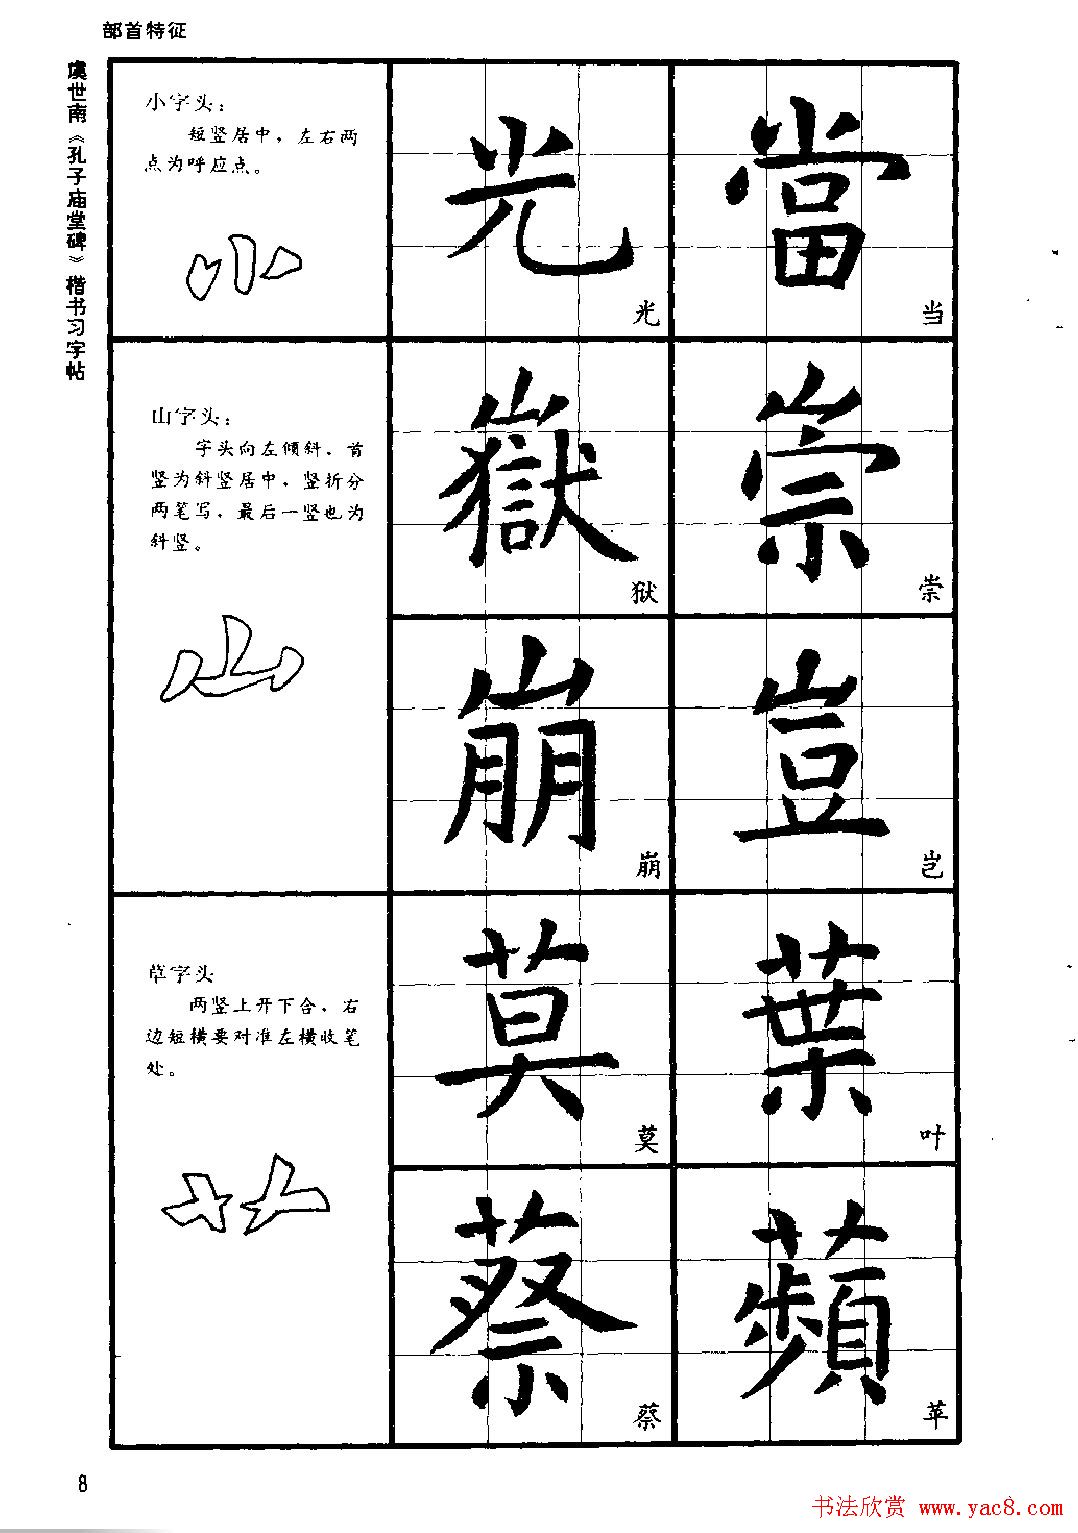 部首特征
虞世南《孔子庙堂碑》楷书习字帖
小字头：
短竖居中，左右两
点为呼应点。
光
光
當
当
山字头：
字头向左倾斜，首
竖为斜竖居中，竖折分
两笔写，最后一竖也为
斜竖。
嶽
狱
崇
崇
崩
崩
豈
岂
草字头
两竖上开下合，右
边短横要对准左横收笔
处。
莫
莫
葉
叶
蔡
蔡
蘋
苹
8
书法欣赏 www.yac8.com